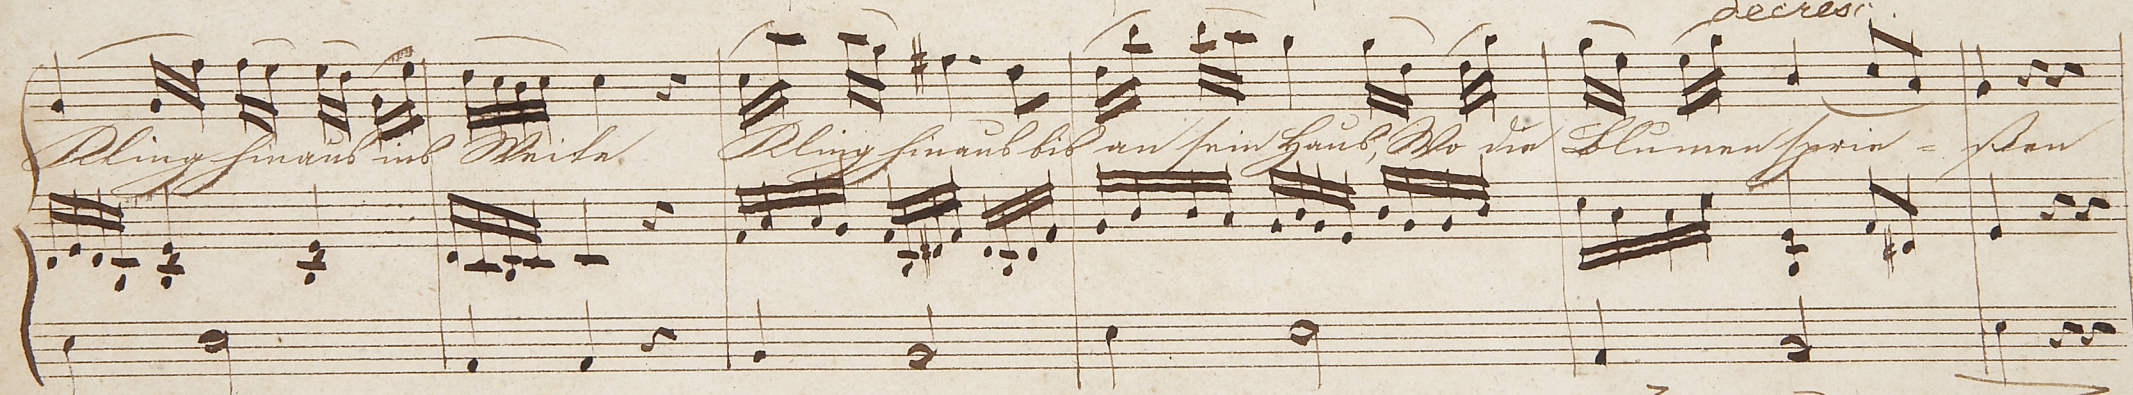 decresc.
Kling hinaus ins Weite Kling hinaus bis an sein Haus, Wo die Blumen sprie - ßen